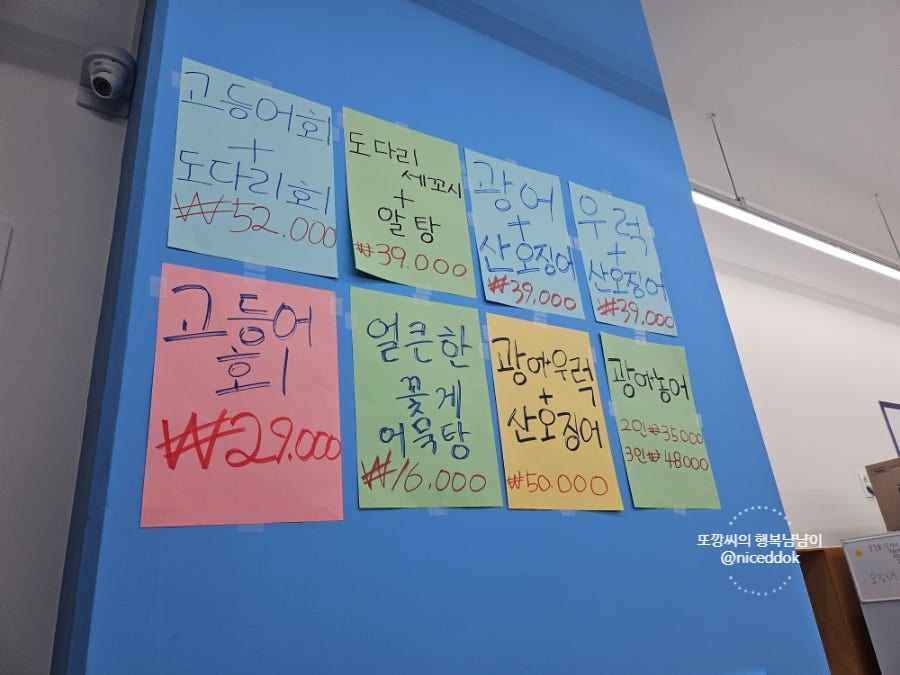 고등어회
+
도다리회
₩52.000
도다리
세꼬시
+
알탕
₩39.000
광어
+
산오징어
₩39,000
우럭
+
산오징어
₩39,000
고등어
회
₩29.000
얼큰한
꽃게
어묵탕
₩16,000
광어우럭
+
산오징어
₩50.000
광어농어
2인 ₩35,000
3인 ₩48,000
또깡씨의 행복냠냠이
@niceddok
오징어